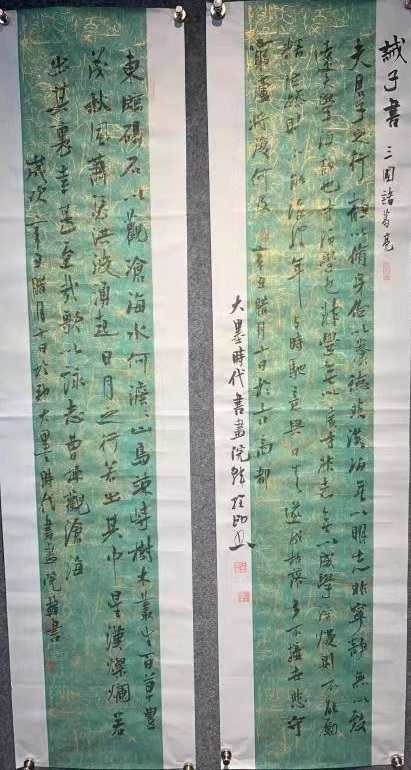 誡子書 三國諸葛亮
夫君子之行靜以脩身儉以養德非淡泊無以明志非寧靜無以致
遠夫學須靜也才須學也非學無以廣才非志無以成學淫慢則不能勵
精險躁則不能治性年与時馳意與日去遂成枯落多不接世悲守
窮廬將復何及 辛丑臘月十日於古高都
大墨時代書畫院
東臨碣石以觀滄海水何澹々山島竦峙樹木叢生百草豐
茂秋風蕭瑟洪波湧起日月之行若出其中星漢燦爛若
出其裏幸甚至哉歌以詠志曹操觀滄海
歲次辛丑臘月十日於大墨時代書畫院